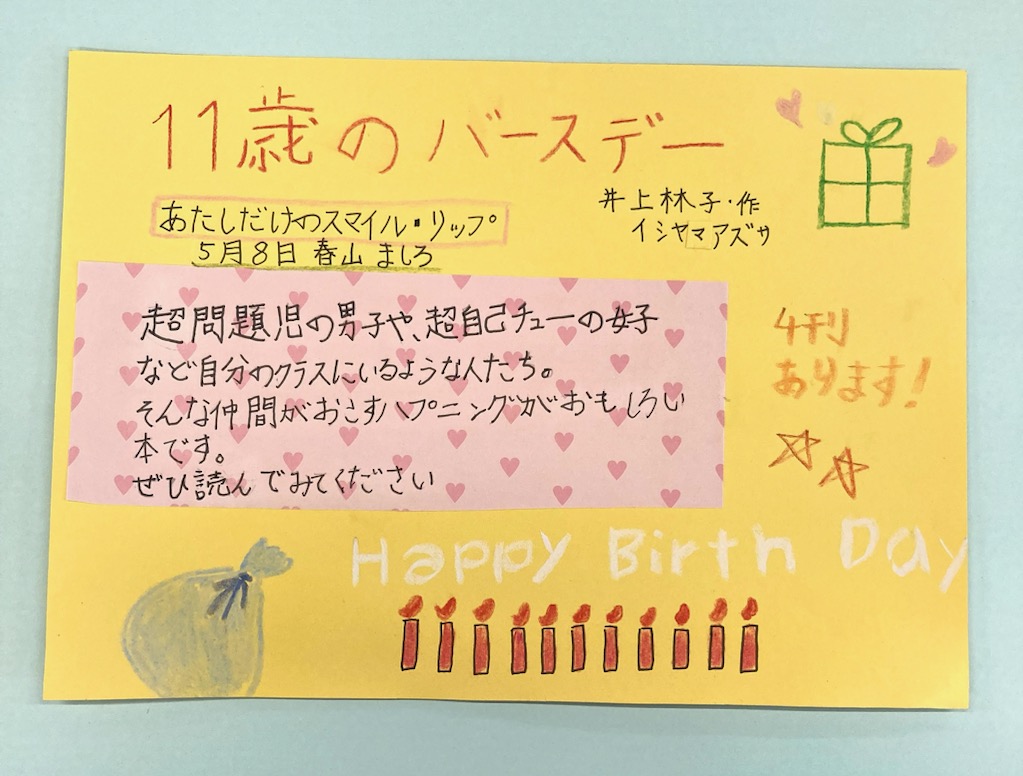 11歳のバースデー
井上林子・作
イシヤマアズサ
あたしだけのスマイル・リップ
5月8日 春山ましろ
超問題児の男子や、超自己チューの女子
など自分のクラスにいるような人たち。
そんな仲間がおこすハプニングがおもしろい
本です。
ぜひ読んでみてください
4刊
あります!
Happy Birth Day